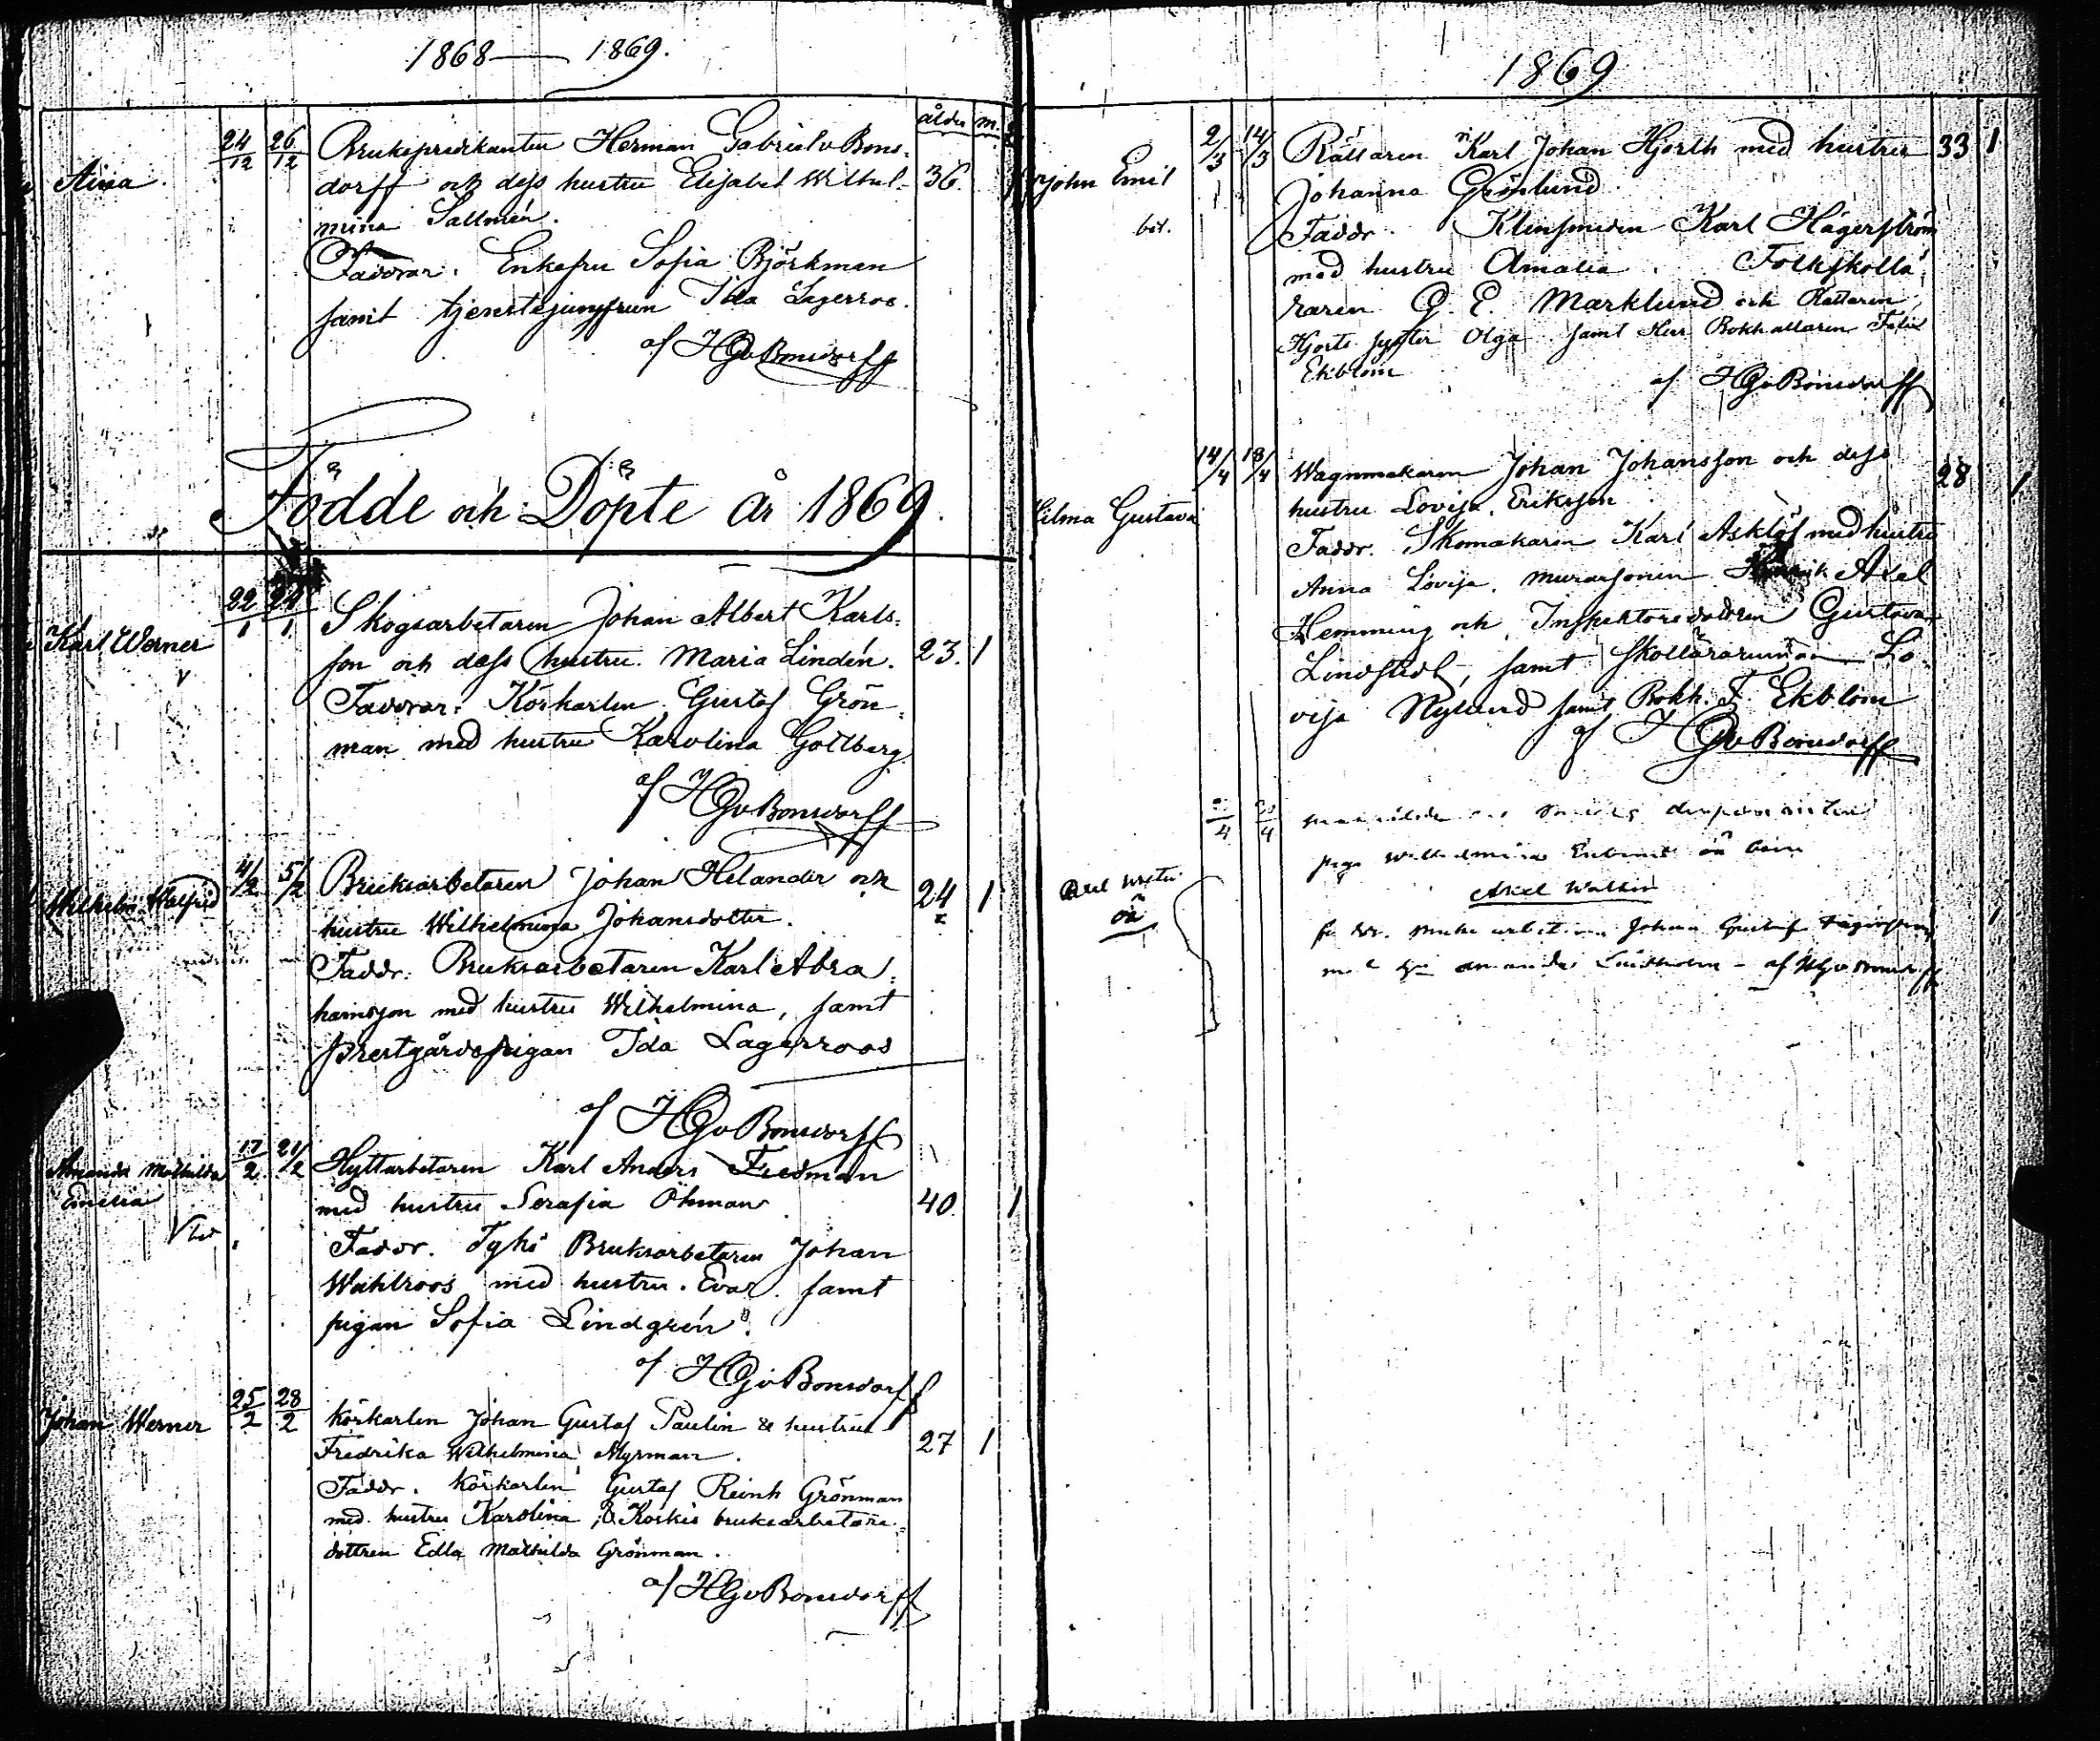 1868 — 1869.
ålder m.
Aina. 24/12 26/12 Brukspredikanten Herman Gabriel v Bons-
dorff och dess hustru Elisabet Wilhel- 36.
mina Sallmén.
Faddrar. Enkefru Sofia Björkman
samt tjenstejungfrun Ida Lagerroos.
af HGvBonsdorff
Födde och Döpte år 1869.
Karl Werner 22/1 24/1 Skogsarbetaren Johan Albert Karls-
son och dess hustru Maria Lindén. 23. 1
Faddrar. Körkarlen Gustaf Grön-
man med hustru Karolina Gottberg
af HGvBonsdorff
Wilhelm Walfrid 4/2 5/2 Bruksarbetaren Johan Helander och 24 1
hustru Wilhelmina Johansdotter.
Faddr. Bruksarbetaren Karl Abra-
hamsson med hustru Wilhelmina, samt
prestgårdspigan Ida Lagerroos
af HGvBonsdorff
Amanda Mathilda 17/2 21/2 Hyttarbetaren Karl Anders Fredman
Emelia med hustru Serafia Öhman 40. 1
Faddr. Tykö Bruksarbetaren Johan
Wahlroos med hustru Eva samt
pigan Sofia Lindgrén.
af HGvBonsdorff
Johan Werner 25/2 28/2 Körkarlen Johan Gustaf Paulin & hustru 27 1
Fredrika Wilhelmina Myrman.
Faddr. Körkarlen Gustaf Reinh Grönman
med hustru Karolina, & Koskis bruksarbetare-
dottren Edla Mathilda Grönman.
af HGvBonsdorff
1869
John Emil 2/3 14/3 Rättaren Karl Johan Hjorth med hustru 33 1
Johanna Grönlund.
Faddr. Klensmeden Karl Hägerström
med hustru Amalia. Folkskollä-
raren G. E. Marklund och Rättaren
Hjorts syster Olga samt Herr Bokhållaren Felix
Ekblom
af HGvBonsdorff
Hilma Gustava 14/4 18/4 Wagnmakaren Johan Johansson och dess 28 1
hustru Lovisa Eriksson
Faddr. Skomakaren Karl Asklöf med hustru
Anna Lovisa, murarsonen Axel
Hemming och Inspektorsdottren Gustava
Lindstedt, samt skollärarinnan Lo-
visa Nylund samt Bokh. F Ekblom
af HGvBonsdorff
/4 /4
piga Wilhelmina oä barn
Axel oä
Axel
Johan Gustaf 1
Amanda Lindholm – af HGvBonsdorff